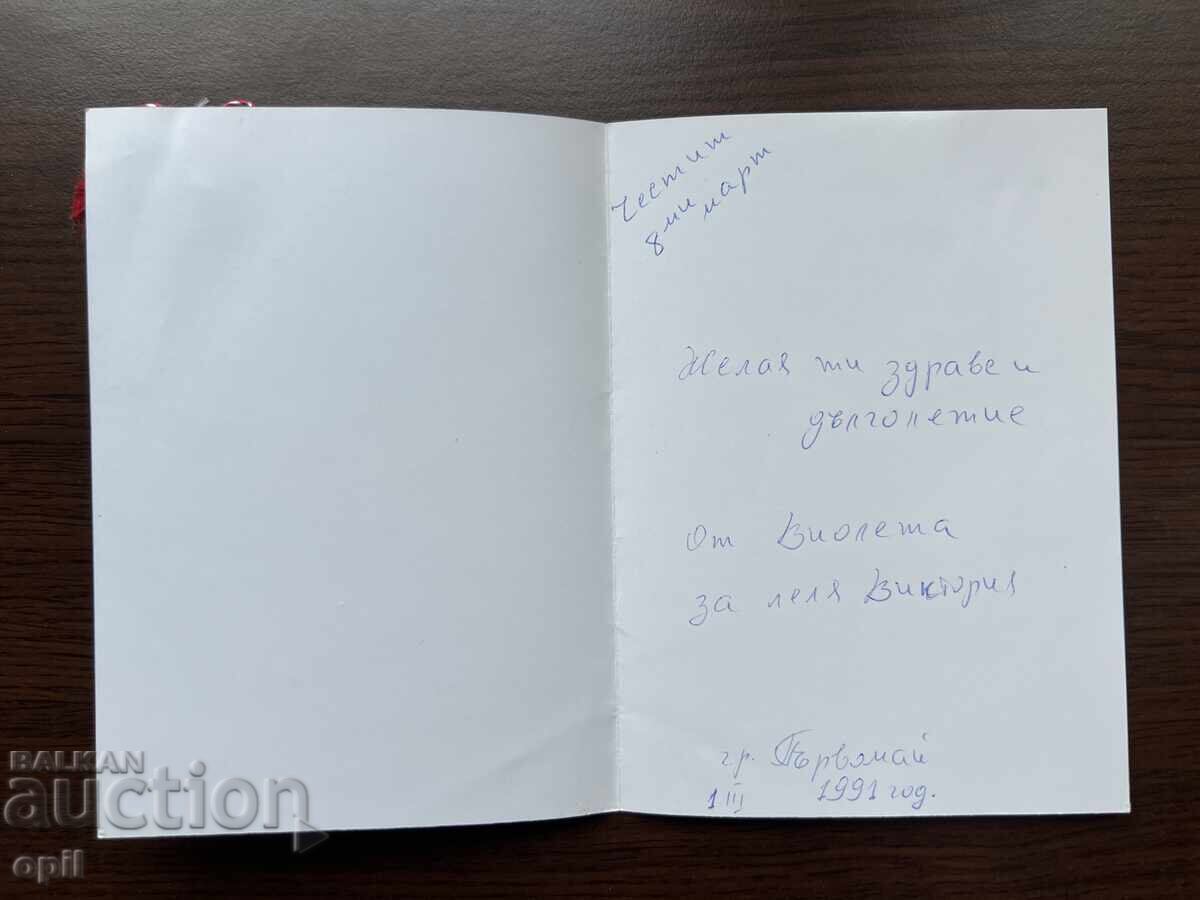 Честит
8ми март
Желая ти здраве и
дълголетие
От Виолета
за леля Виктория
гр. Първомай
1 III 1991 год.
BALKAN
auction
opil